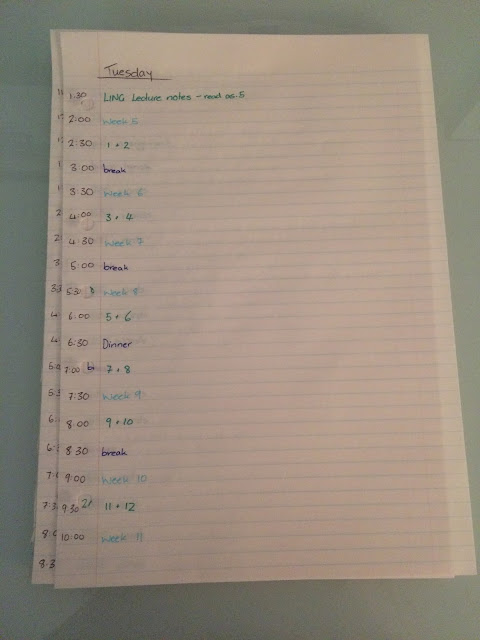 Tuesday
1:30 LING Lecture notes - read
2:00 Week 5
2:30 1 + 2
3:00 break
3:30 Week 6
4:00 3 + 4
4:30 Week 7
5:00 break
5:30 Week 8
6:00 5 + 6
6:30 Dinner
7:00 7 + 8
7:30 Week 9
8:00 9 + 10
8:30 break
9:00 Week 10
9:30 11 + 12
10:00 Week 11